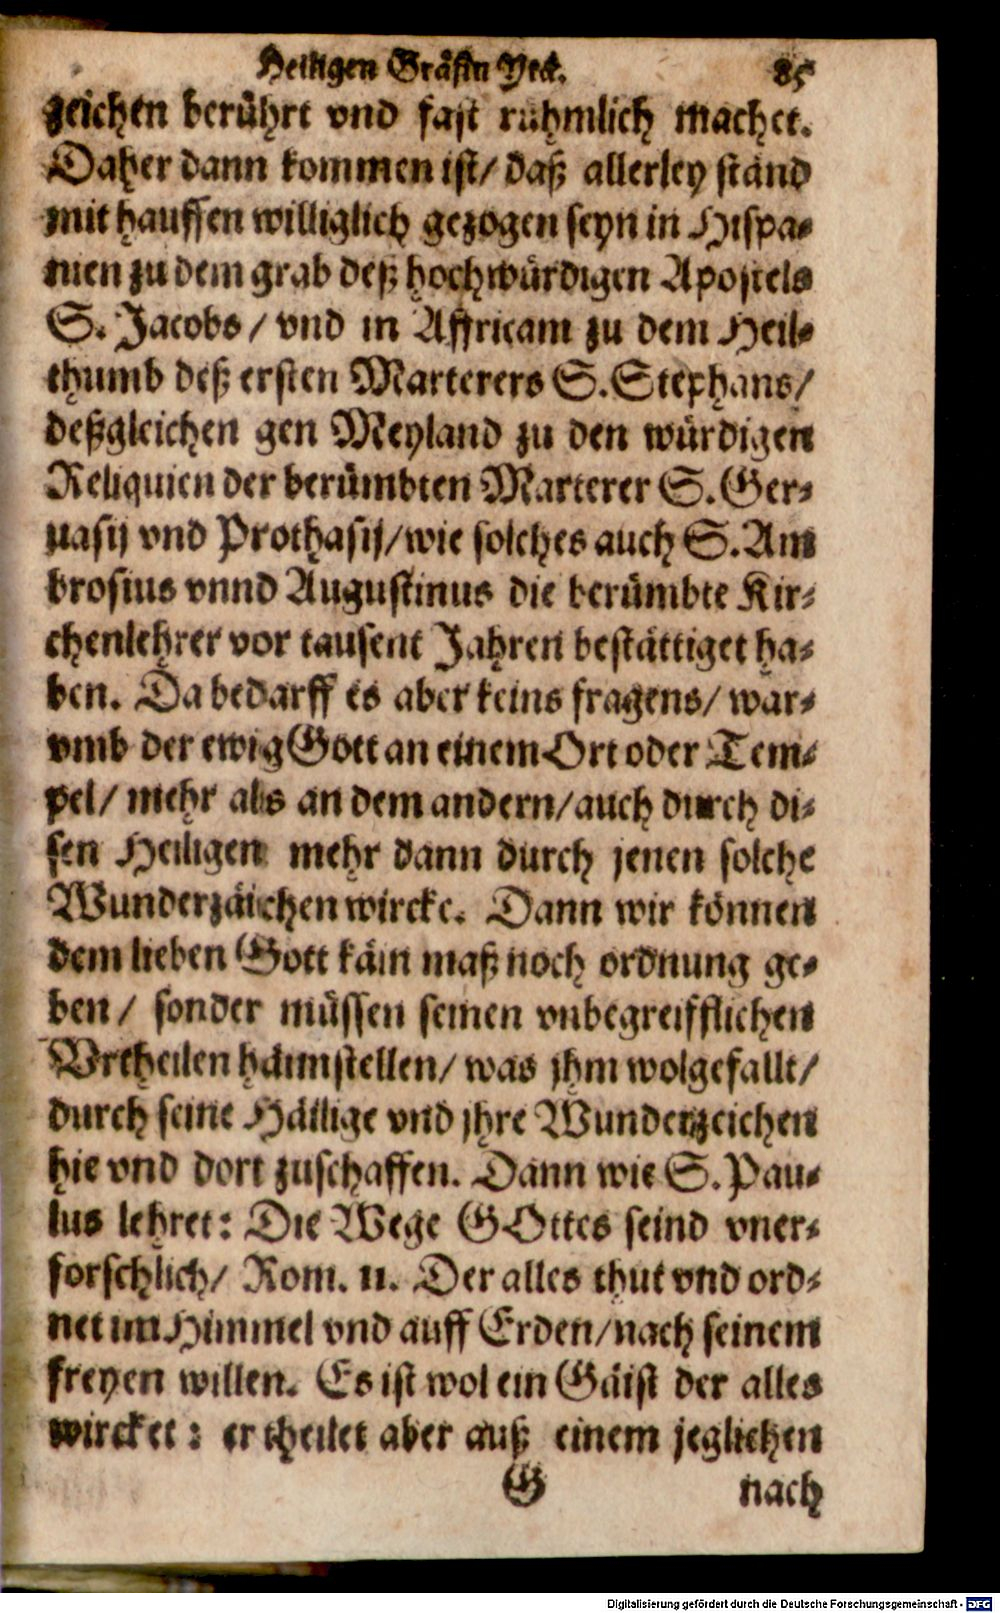 Heiligen Gräfin Yeck. 85
zeichen berührt vnd fast rühmlich machet.
Daher dann kommen ist/ daß allerley ständ
mit hauffen williglich gezogen seyn in Hispa-
nien zu dem grab deß hochwürdigen Apostels
S. Jacobs / vnd in Affricam zu dem Heil-
thumb deß ersten Marterers S. Stephans/
deßgleichen gen Meyland zu den würdigen
Reliquien der berümbten Marterer S. Ger-
uasij vnd Prothasij/ wie solches auch S. Am
brosius vnnd Augustinus die berümbte Kir-
chenlehrer vor tausent Jahren bestättiget ha-
ben. Da bedarff es aber keins fragens/ war-
vmb der ewig Gott an einem Ort oder Tem-
pel/ mehr als an dem andern/ auch durch di-
sen Heiligen mehr dann durch jenen solche
Wunderzäichen wircke. Dann wir können
dem lieben Gott käin maß noch ordnung ge-
ben / sonder müssen seinen vnbegreifflichen
Vrtheilen häimstellen/ was jhm wolgefallt/
durch seine Häilige vnd jhre Wunderzeichen
hie vnd dort zuschaffen. Dann wie S. Pau-
lus lehret: Die Wege GOttes seind vner-
forschlich/ Rom. 11. Der alles thut vnd ord-
net im Himmel vnd auff Erden/ nach seinem
freyen willen. Es ist wol ein Gäist der alles
wircket: er theilet aber auß einem jeglichen
G nach
Digitalisierung gefördert durch die Deutsche Forschungsgemeinschaft - DFG